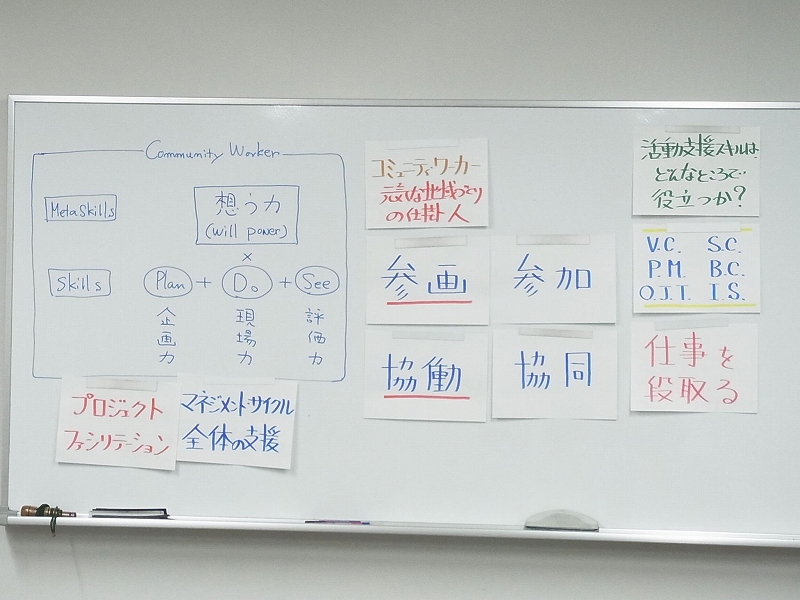 Community Worker
MetaSkills
想う力
(Will power)
×
Skills
Plan + Do + See
企画力
現場力
評価力
プロジェクト
ファシリテーション
マネジメントサイクル
全体の支援
コミュニティ・ワーカー
元気な地域づくり
の仕掛人
参画
参加
協働
協同
活動支援スキルは、
どんなところで
役立つか?
V.C. S.C.
P.M. B.C.
O.J.T. I.S.
仕事を
段取る